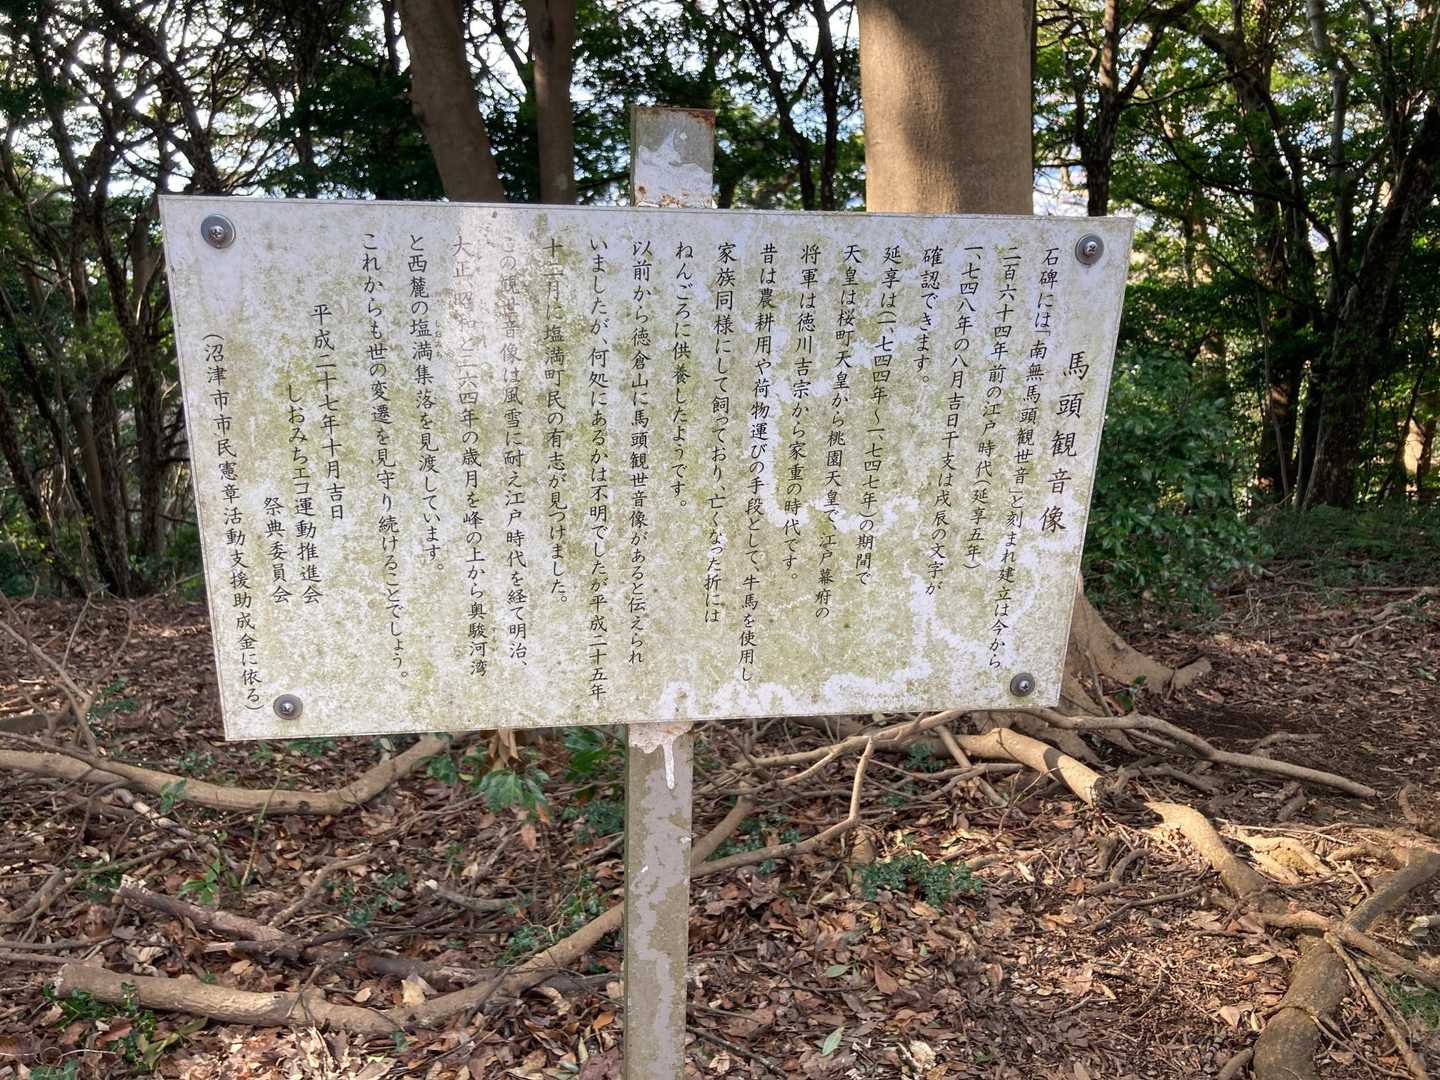 馬頭観音像
石碑には「南無馬頭観世音」と刻まれ建立は今から
二百六十四年前の江戸時代（延享五年）
一、七四八年の八月吉日干支は戊辰の文字が
確認できます。
延享は（一、七四四年～一、七四七年）の期間で
天皇は桜町天皇から桃園天皇で、江戸幕府の
将軍は徳川吉宗から家重の時代です。
昔は農耕用や荷物運びの手段として、牛馬を使用し
家族同様にして飼っており、亡くなった折には
ねんごろに供養したようです。
以前から徳倉山に馬頭観世音像があると伝えられ
いましたが、何処にあるかは不明でしたが平成二十五年
十二月に塩満町民の有志が見つけました。
この観世音像は風雪に耐え江戸時代を経て明治、
大正、昭和、と二六四年の歳月を峰の上から奥駿河湾
と西麓の塩満集落を見渡しています。
これからも世の変遷を見守り続けることでしょう。
平成二十七年十月吉日
しおみちエコ運動推進会
祭典委員会
（沼津市市民憲章活動支援助成金に依る）